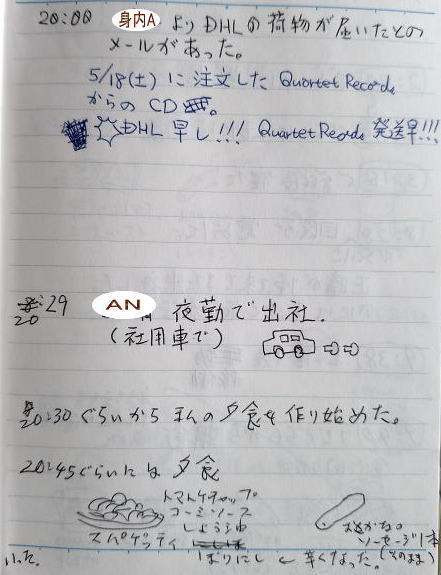 20:00 身内A よりDHLの荷物が届いたとの
メールがあった。
5/18(土)に注文した Quartet Records
からの CD。
DHL 早し!!! Quartet Reords 発送早!!!
20:29 AN 夜勤で出社.
(社用車で)
20:30ぐらいから の夕食を作り始めた。
20:45ぐらいには 夕食
トマトケチャップ
コーミソース
しょうゆ
スパゲッティ
ばりにし 辛くなった。
おさかな。
ソーセージ1本
(そのまま)